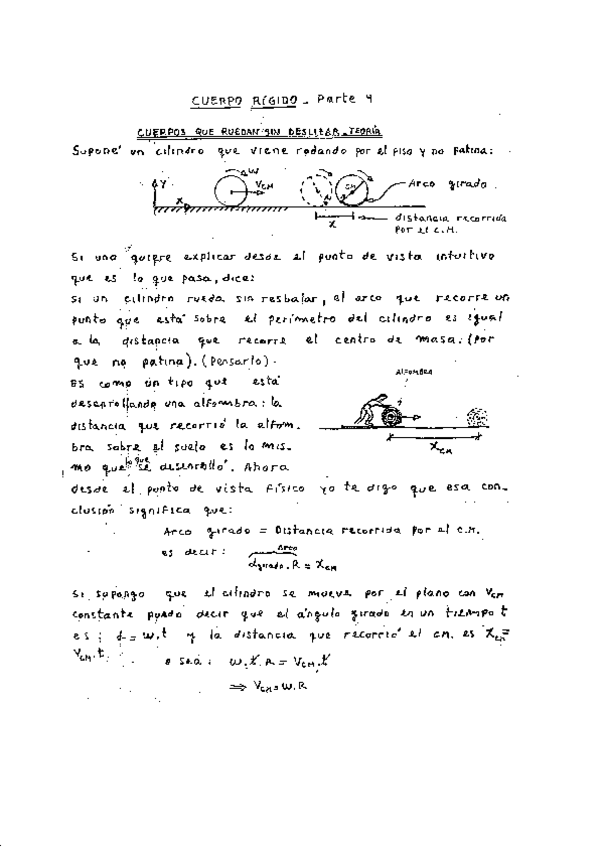 CUERPO RÍGIDO - Parte 4
CUERPOS QUE RUEDAN SIN DESLIZAR - TEORÍA
Suponé un cilindro que viene rodando por el piso y no patina:
Y
X
W
VCM
CM
Arco girado.
X
distancia recorrida
por el C.M.
Si uno quiere explicar desde el punto de vista intuitivo
que es lo que pasa, dice:
Si un cilindro rueda sin resbalar, el arco que recorre un
punto que está sobre el perímetro del cilindro es igual
a la distancia que recorre el centro de masa. (Por
que no patina). (Pensarlo).
Es como un tipo que está
desenrollando una alfombra: la
distancia que recorrió la alfom-
bra sobre el suelo es lo mis-
mo que lo que se desenrolló. Ahora
ALFOMBRA
XCM
desde el punto de vista físico yo te digo que esa con-
clusión significa que:
Arco girado = Distancia recorrida por el C.M.
es decir:
Arco
αgirado . R = XCM
Si supongo que el cilindro se mueve por el plano con VCM
constante puedo decir que el ángulo girado en un tiempo t
es: α = w.t y la distancia que recorrió el cm. es XCM =
VCM.t.
o sea: w.t.R = VCM.t
⇒ VCM = w.R